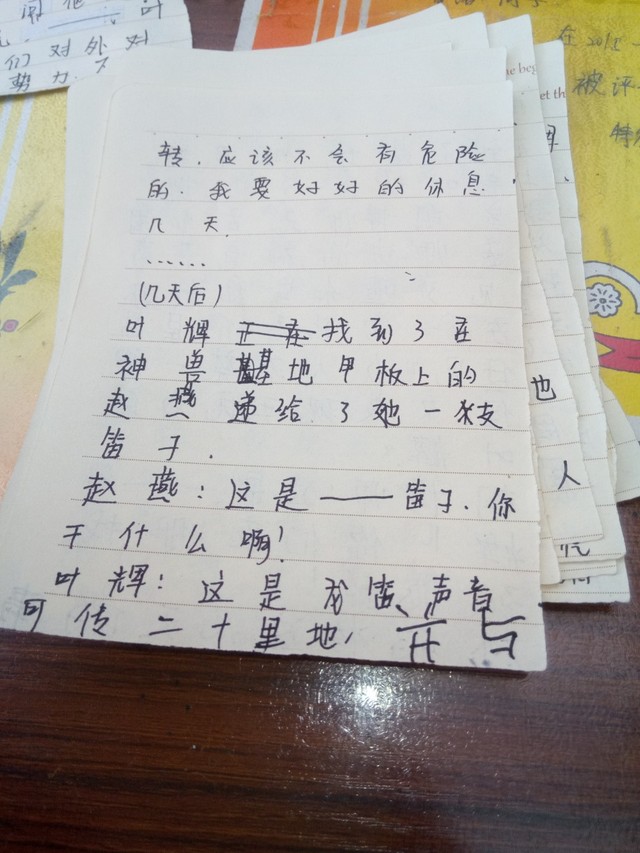 们对外对
势力.不
在2015
被评
ne beg
et th
转.应该不会有危险
的.我要好好的休息.
几天.
……
(几天后)
叶辉找到了在
神兽基地甲板上的
赵燕递给了她一支
笛子.
赵燕:这是——笛子.你
干什么啊!
叶辉:这是 笛、声音
可传二十里地,
也
人